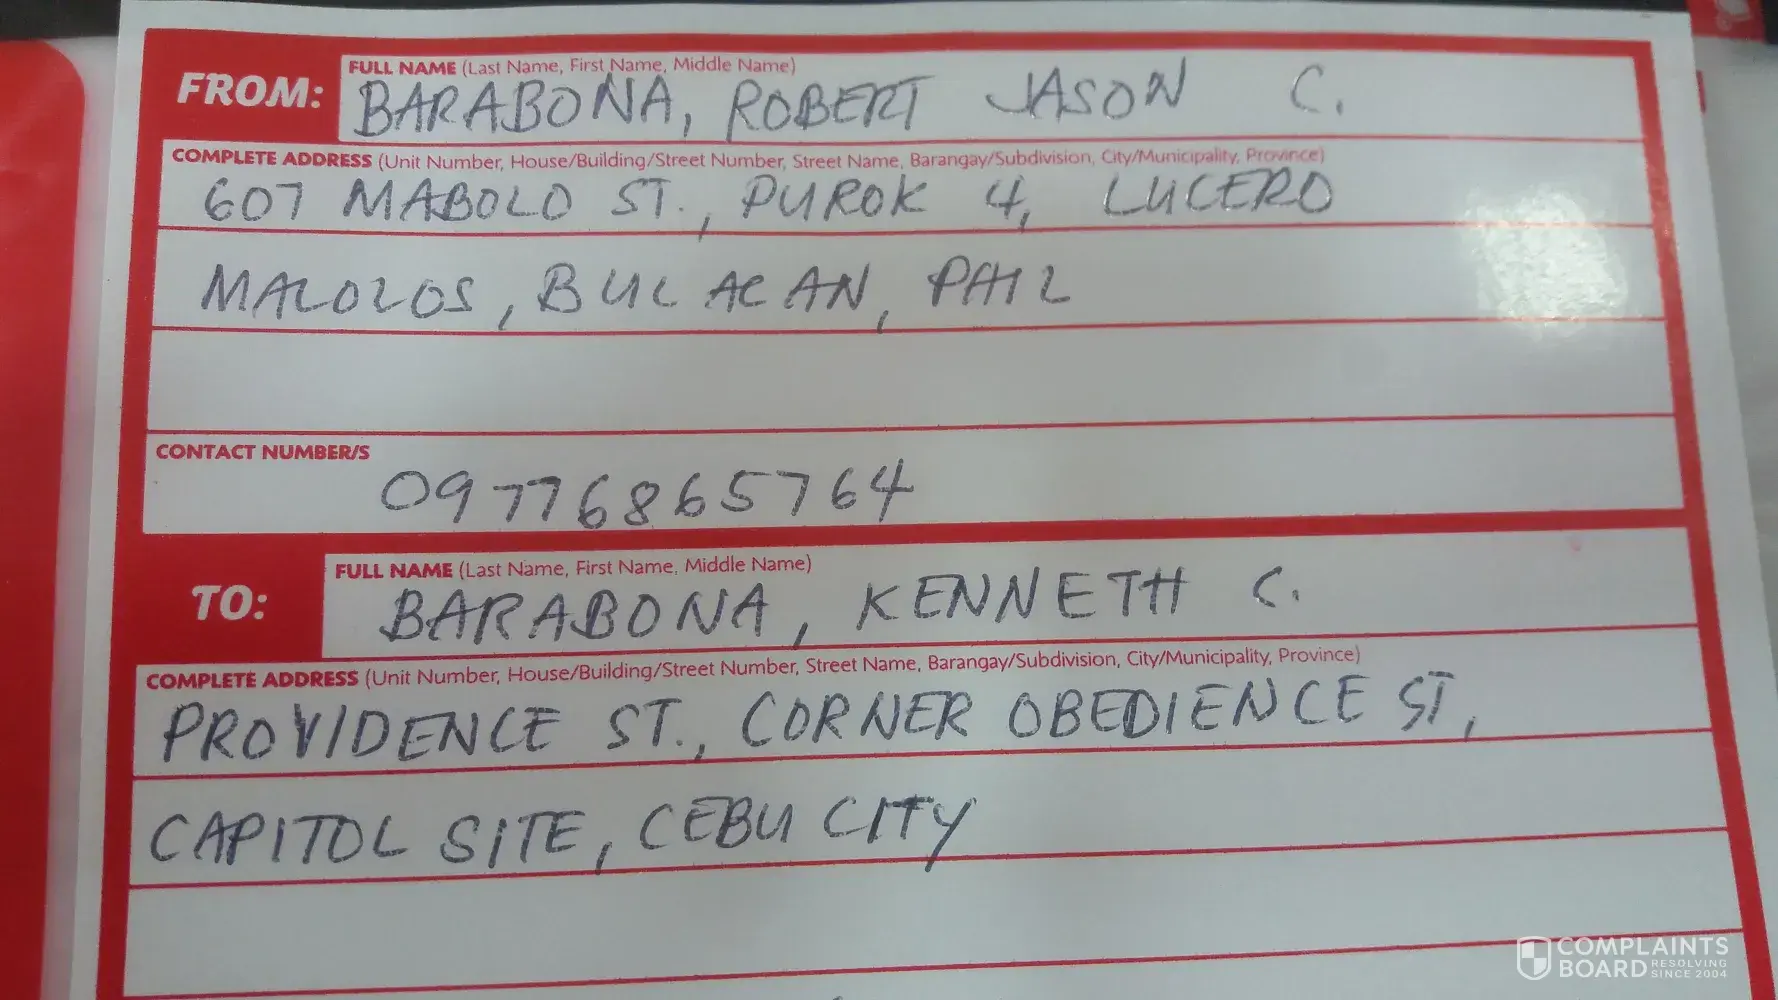 FROM:
FULL NAME (Last Name, First Name, Middle Name)
BARABONA, ROBERT JASON C.
COMPLETE ADDRESS (Unit Number, House/Building/Street Number, Street Name, Barangay/Subdivision, City/Municipality, Province)
607 MABOLO ST., PUROK 4, LUCERO
MALOLOS, BULACAN, PHIL
CONTACT NUMBER/S
09776865764
TO:
FULL NAME (Last Name, First Name, Middle Name)
BARABONA, KENNETH C.
COMPLETE ADDRESS (Unit Number, House/Building/Street Number, Street Name, Barangay/Subdivision, City/Municipality, Province)
PROVIDENCE ST., CORNER OBEDIENCE ST,
CAPITOL SITE, CEBU CITY
COMPLAINTS
BOARD RESOLVING SINCE 2004